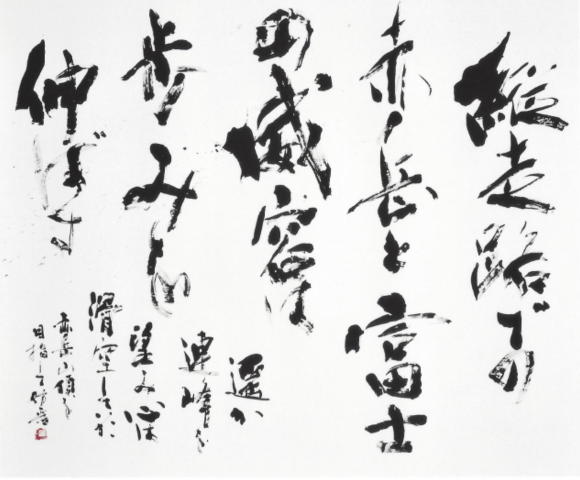 縦走路での
赤岳と富士
の威容は
歩み
伸ばす
遥か
連峰を
望み心は
滑空していた
赤岳山頂を
目指して